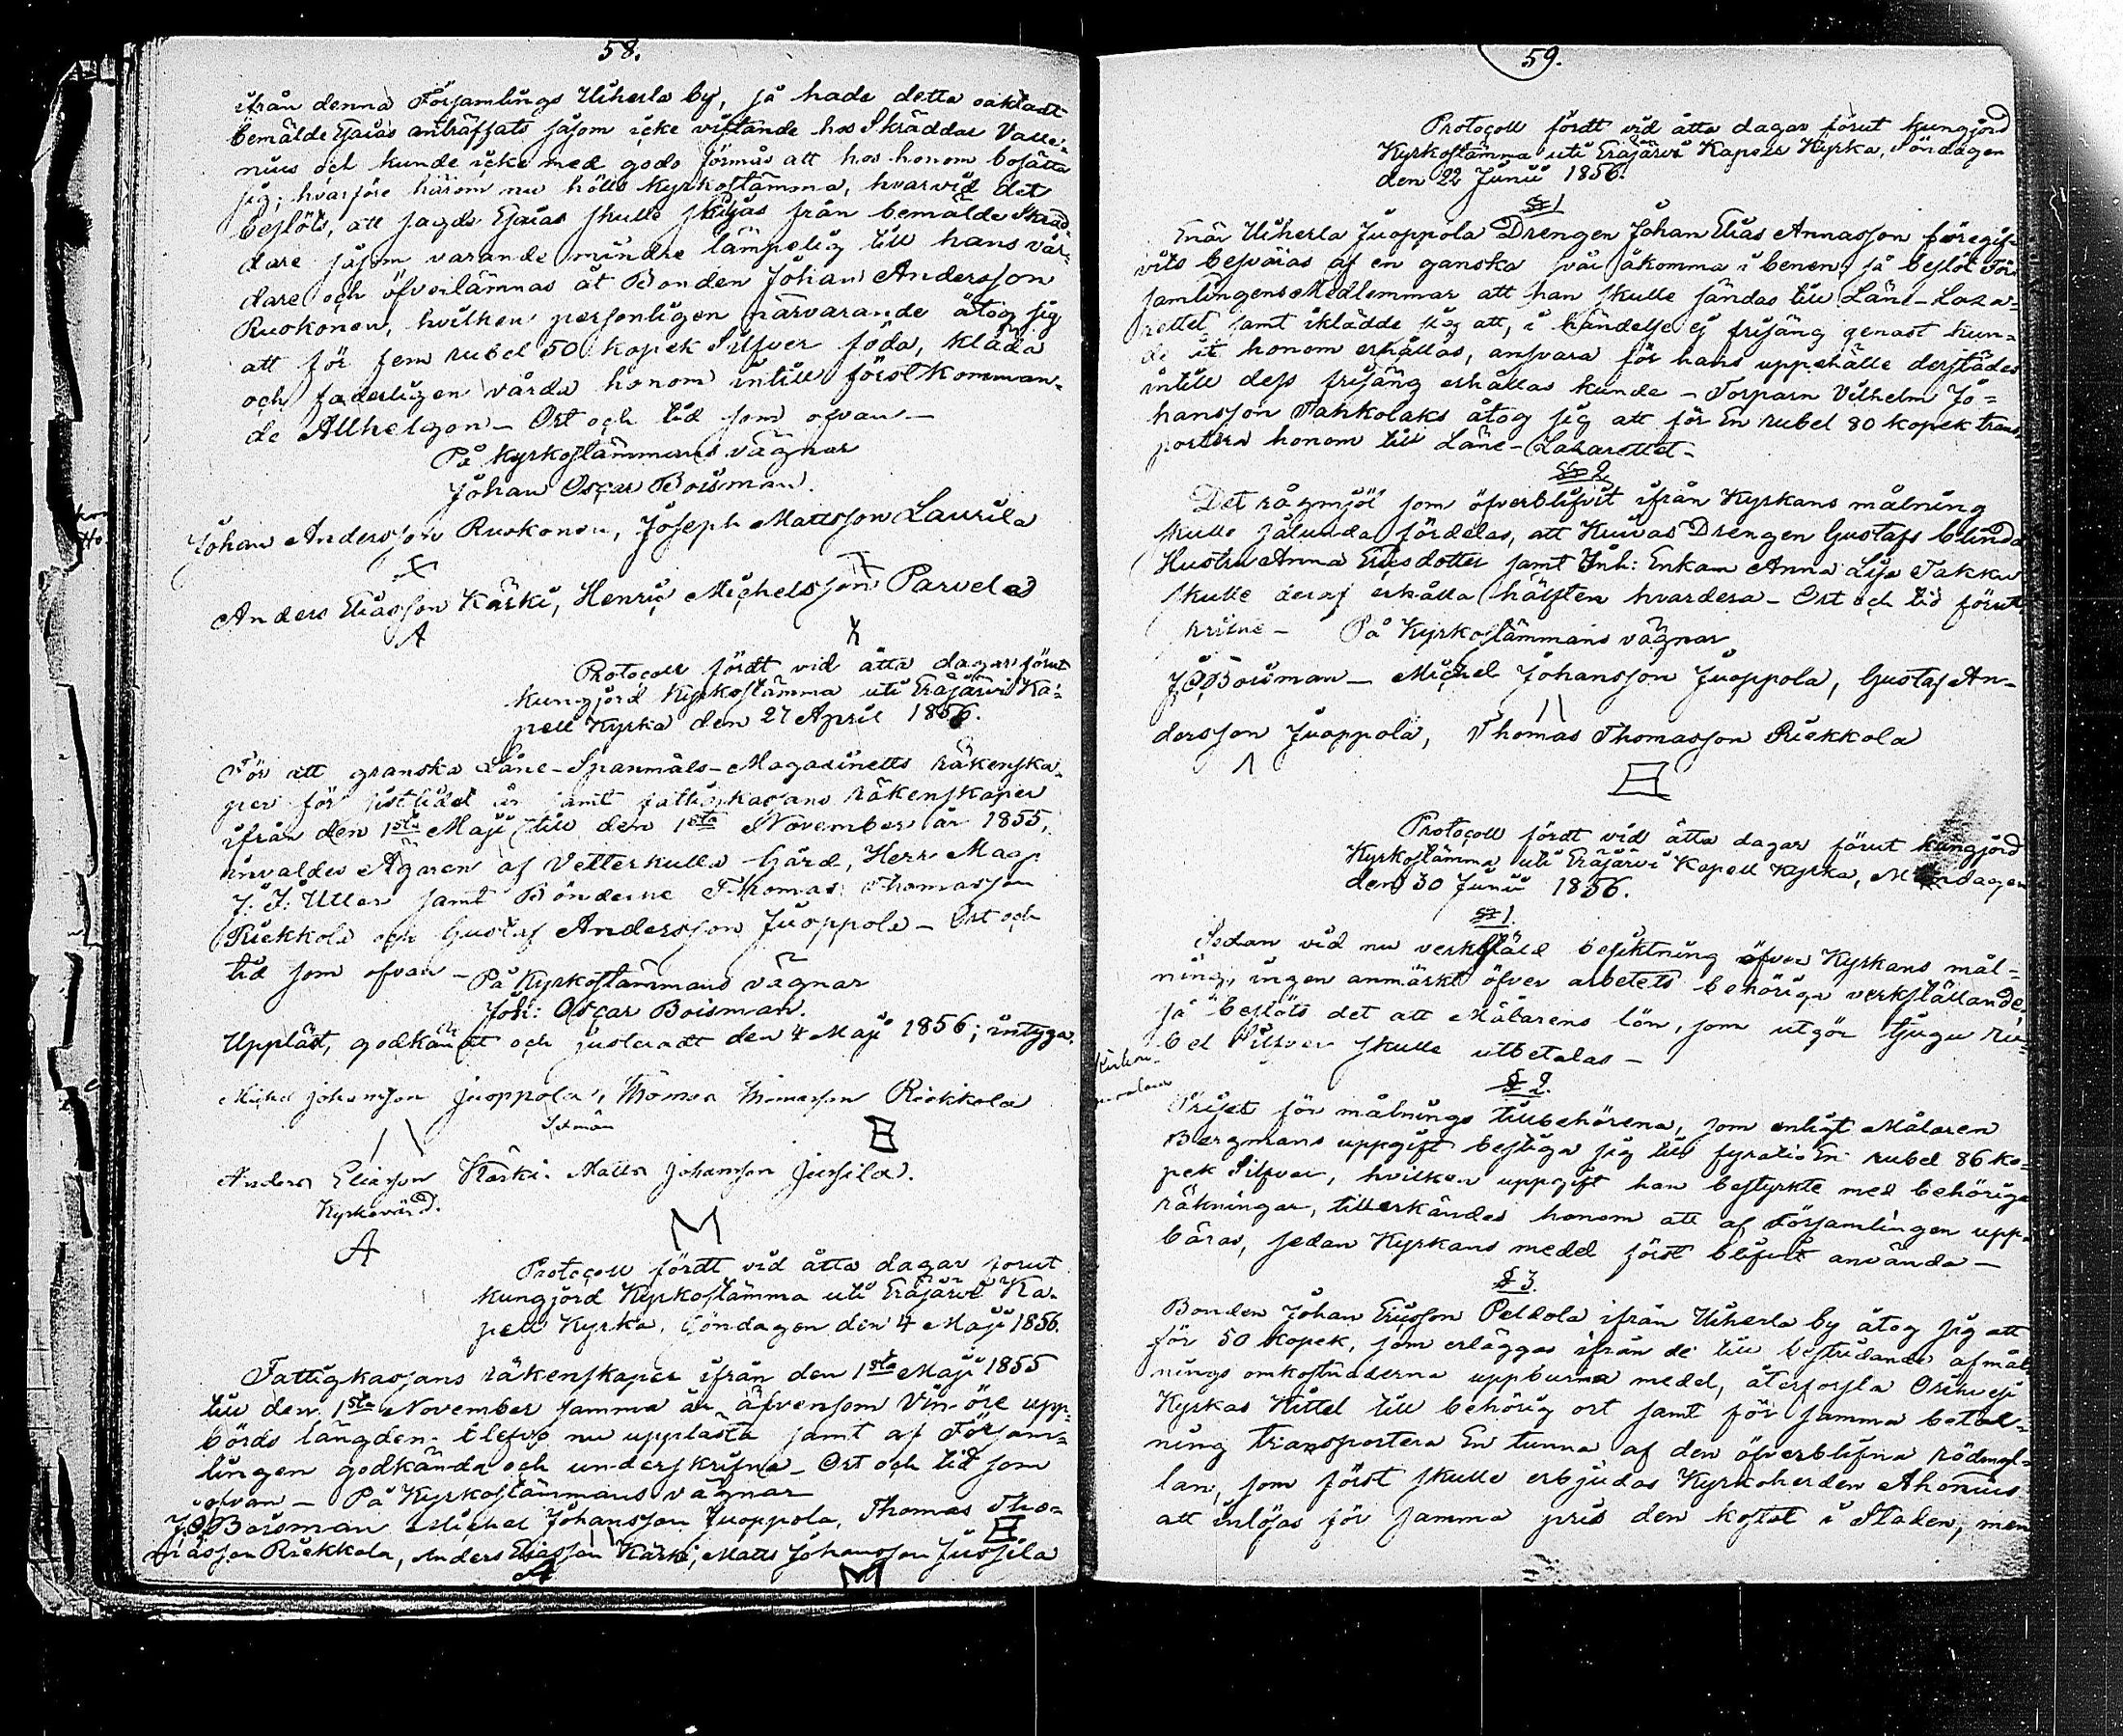 58.
ifrån denna Församlings Uiherla by, så hade detta oaktadt
bemälde Esaias anträffats såsom icke vistande hos Skräddar Valle-
nius och kunde icke med godo förmås att hos honom bosätta
sig; hvarföre härom nu hölls Kyrkostämma, hvarvid det
beslöts, att sagde Esaias skulle skiljas från bemälde Skräd-
dare såsom varande mindre lämpelig till hans vår-
dare och öfverlämnas åt Bonden Johan Andersson
Ruokonen, hvilken personligen närvarande åtog sig
att för fem rubel 50 kopek Silfver föda, kläda
och faderligen vårda honom intill förstkomman-
de Allhelgon – Ort och tid som ofvan –
På Kyrkostämmans vägnar
Johan Oscar Boisman.
Johan Andersson Ruokonen, Joseph Mattsson Laurila
Anders Eliasson Kärki, Henric Michelsson Parvela
A
X
Protocoll fördt vid åtta dagar förut
kungjord Kyrkostämma uti Eräjärvi Ka-
pell Kyrka den 27 April 1856.
För att granska Låne-Spanmåls-Magasinetts räkenska-
per för sistlidet år samt fattigkassans räkenskaper
ifrån den 1sta Maji till den 1sta November år 1855,
invaldes Ägaren af Vetterkulla Gård, Herr Mag:
J: J: Utter samt Bönderne Thomas Thomasson
Riekkola och Gustaf Andersson Juoppola – Ort och
tid som ofvan – På Kyrkostämmans vägnar
Joh: Oscar Boisman.
Uppläst, godkändt och justeradt den 4 Maji 1856; intyga
Michel Johansson Juoppola, Thomas Thomasson Riekkola
Anders Eliasson Kärki. Matts Johansson Jussila.
Kyrkovärd.
A
M
Protocoll fördt vid åtta dagar förut
kungjord Kyrkostämma uti Eräjärvi Ka-
pell Kyrka, Söndagen den 4 Maji 1856.
Fattigkassans räkenskaper ifrån den 1sta Maji 1855
till den 1sta November samma år, äfvensom Vin-öre upp-
börds längden blefvo nu upplästa samt af Försam-
lingen godkända och underskrifna – Ort och tid som
ofvan – På Kyrkostämmans vägnar
J.O.Boisman Michel Johansson Juoppola, Thomas Tho-
masson Riekkola, Anders Eliasson Kärki, Matts Johansson Jussila
A
M
59.
Protocoll fördt vid åtta dagar förut kungjord
Kyrkostämma uti Eräjärvi Kapells Kyrka, Söndagen
den 22 Junii 1856.
§ 1
Enär Uiherla Juoppola Drengen Johan Elias Annasson föregif-
vits besväras af en ganska svår åkomma i benen, så beslöt För-
samlingens Medlemmar att han skulle sändas till Läns-Laza-
rettet, samt iklädde sig att, i händelse ej frisäng genast kun-
de åt honom erhållas, ansvara för hans uppehälle derstädes
intill dess frisäng erhållas kunde – Torparn Vilhelm Jo-
hansson Tahkolaks åtog sig att för En rubel 80 kopek trans-
portera honom till Läns-Lazarettet –
§ 2
Det rågmjöl som öfverblifvit ifrån Kyrkans målning
skulle sålunda fördelas, att Kuivas Drengen Gustafs blinda
Hustru Anna Ericsdotter samt Inh: Enkan Anna Lisa Takku
skulle deraf erhålla hälften hvardera – Ort och tid förut
skrifne – På Kyrkostämmans vägnar
J.O.Boisman – Michel Johansson Juoppola, Gustaf An-
dersson Juoppola, Thomas Thomasson Riekkola
Protocoll fördt vid åtta dagar förut kungjord
Kyrkostämma uti Eräjärvi Kapell Kyrka, Måndagen
den 30 Junii 1856.
§ 1.
Sedan vid nu verkstäld besiktning öfver Kyrkans mål-
ning, ingen anmärkt öfver arbetets behöriga verkställande,
så beslöts det att Målarens lön, som utgör tjugu ru-
bel Silfver skulle utbetalas –
§ 2.
Priset för målnings tillbehören, som enligt Målaren
Bergmans uppgift bestiga sig till fyratio En rubel 86 ko-
pek Silfver, hvilken uppgift han bestyrkte med behöriga
räkningar, tillerkändes honom att af Församlingen upp-
bäras, sedan Kyrkans medel först blifvit använda –
§ 3.
Bonden Johan Ericsson Peldola ifrån Uiherla by åtog sig att
för 50 kopek, som erläggas ifrån de till bestridande af mål-
nings omkostnaderna uppburna medel, återforsla Orihvesi
Kyrkas Kittel till behörig ort samt för samma betal-
ning transportera En tunna af den öfverblifna rödmyl-
lan, som först skulle erbjudas Kyrkoherden Ahonius
att inlösas för samma pris den kostat i Staden, men